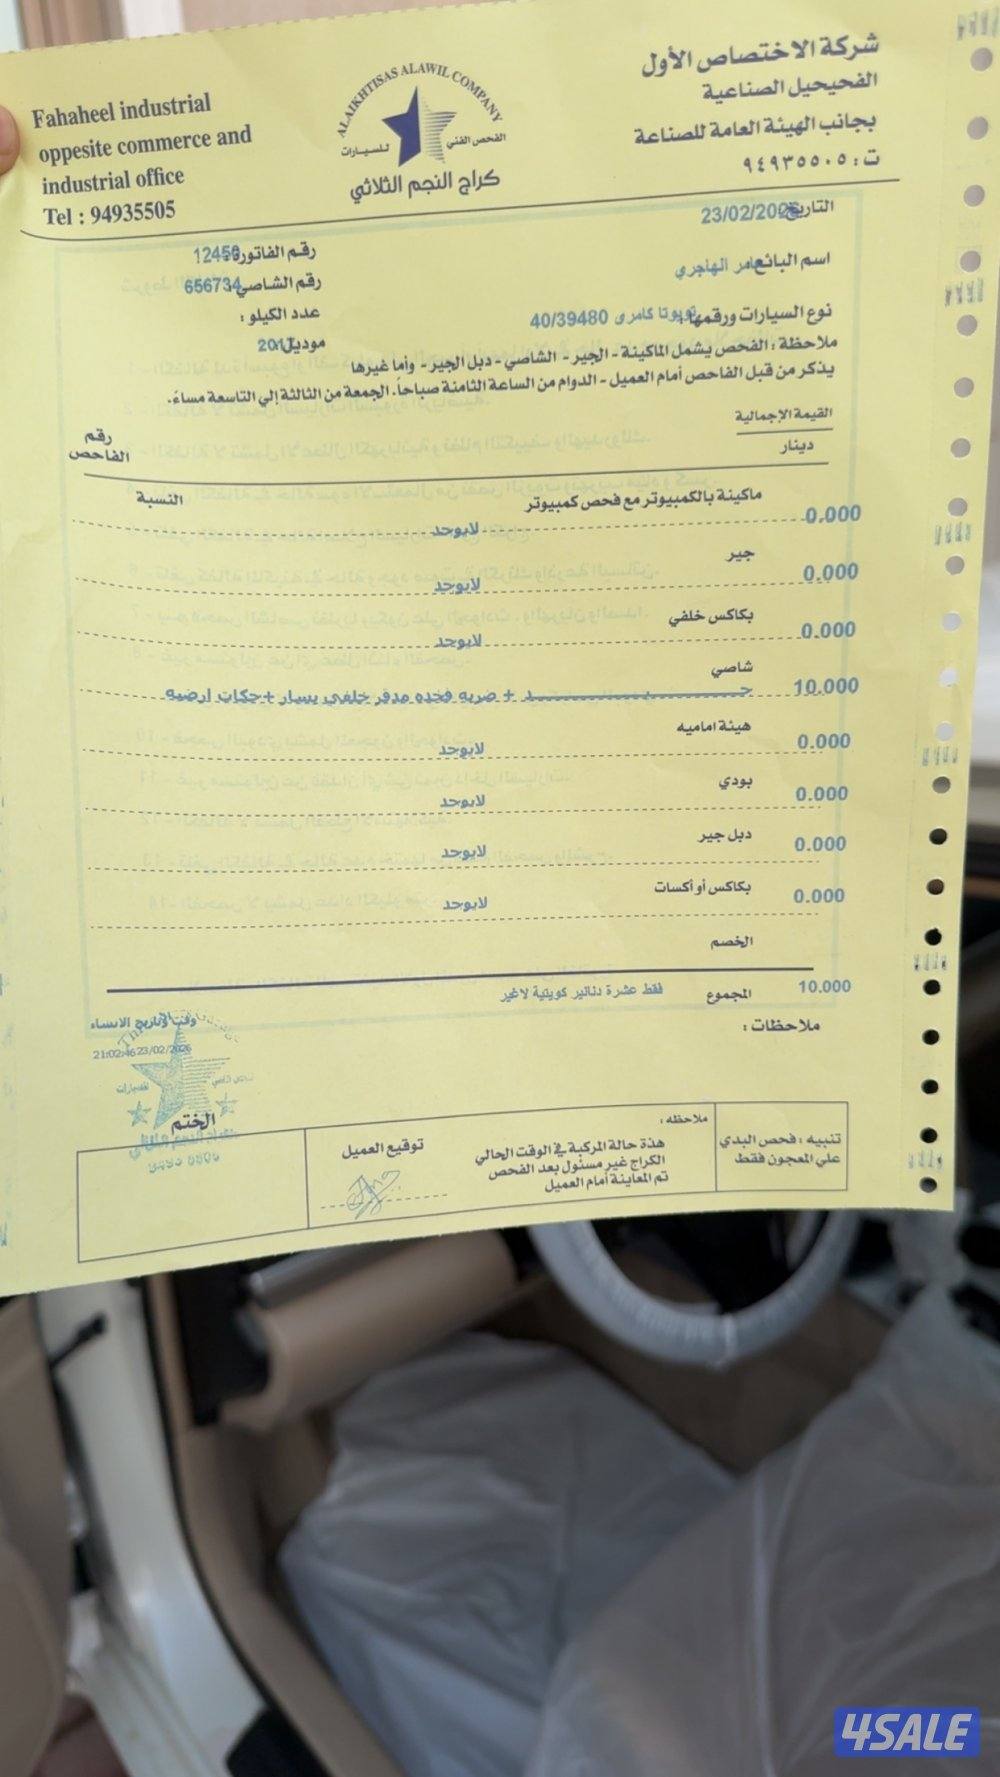 Fahaheel industrial
oppesite commerce and
industrial office
Tel : 94935505
ALAIKHTISAS ALAWIL COMPANY
الفحص الفني للسيارات
كراج النجم الثلاثي
شركة الاختصاص الأول
الفحيحيل الصناعية
بجانب الهيئة العامة للصناعة
ت : ٩٤٩٣٥٥٠٥
التاريخ
رقم الفاتورة
اسم البائع عامر الهاجري
رقم الشاصي 656734
نوع السيارات ورقمها تويوتا كامرى 40/39480
عدد الكيلو :
موديل
ملاحظة : الفحص يشمل الماكينة - الجير - الشاصي - دبل الجير - وأما غيرها
يذكر من قبل الفاحص أمام العميل - الدوام من الساعة الثامنة صباحاً. الجمعة من الثالثة إلي التاسعة مساءً.
القيمة الإجمالية
دينار
رقم الفاحص
النسبة
ماكينة بالكمبيوتر مع فحص كمبيوتر
0.000 لايوجد
جير
0.000 لايوجد
بكاكس خلفي
0.000 لايوجد
شاصي
10.000 + ضربه فخده مدفر خلفي يسار + حكات ارضيه
هيئة اماميه
0.000 لايوجد
بودي
0.000 لايوجد
دبل جير
0.000 لايوجد
بكاكس أو أكسات
0.000 لايوجد
الخصم
المجموع فقط عشرة دنانير كويتية لاغير 10.000
ملاحظات :
وقت وتاريخ الانشاء
21:02:46 23/02/2026
الختم
توقيع العميل
ملاحظه :
هذة حالة المركبة في الوقت الحالي
الكراج غير مسئول بعد الفحص
تم المعاينة أمام العميل
تنبيه : فحص البدي
علي المعجون فقط
4SALE